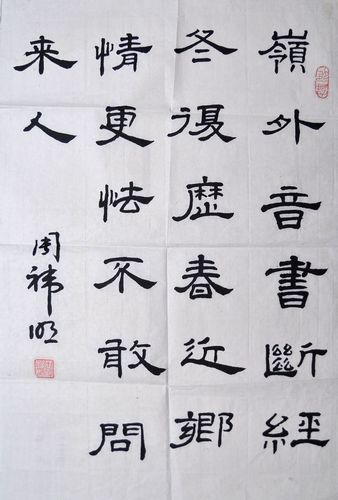 嶺外音書斷經
冬復歷春近鄉
情更怯不敢問
来人
周禕明